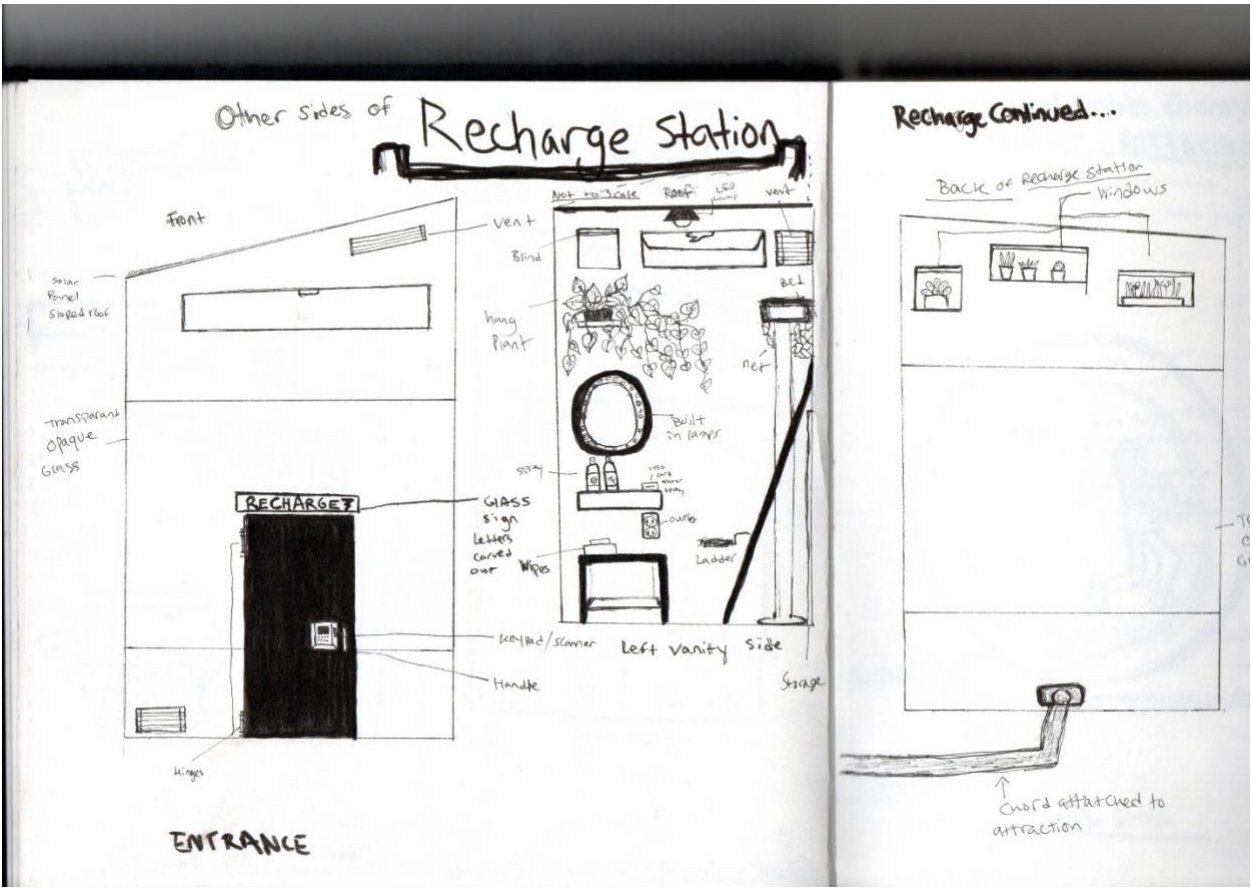 Other sides of
Recharge Station
Front
vent
Solar
Panel
sloped roof
Transparant
opaque
Glass
RECHARGE
GLASS
sign
letters
carved
out
Keypad/scanner
Handle
Hinges
ENTRANCE
Not to scale
Roof
LED
lamp
vent
Blind
Bed
hang
Plant
net
Built
in lamps
spray
spray
outlet
Wipes
Ladder
Left vanity side
Storage
Recharge Continued...
Back of Recharge Station
Windows
Chord attatched to
attraction